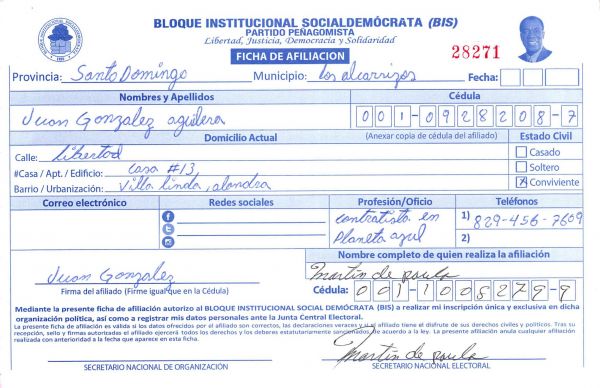 BLOQUE INSTITUCIONAL SOCIALDEMÓCRATA (BIS)
PARTIDO PEÑAGOMISTA
Libertad, Justicia, Democracia y Solidaridad
FICHA DE AFILIACION
28271
Provincia: Santo Domingo Municipio: los alcarrizos Fecha:
Nombres y Apellidos Cédula
Juan Gonzalez aguilera 001-0928208-7
Domicilio Actual (Anexar copia de cédula del afiliado) Estado Civil
Calle: libertad Casado
#Casa / Apt. / Edificio: Casa #13 Soltero
Barrio / Urbanización: Villa linda, alondra Conviviente
Correo electrónico Redes sociales Profesión/Oficio Teléfonos
contratista en 1) 829-456-7609
Planeta azul 2)
Nombre completo de quien realiza la afiliación
Juan Gonzalez Martin de paula
Firma del afiliado (Firme igual que en la Cédula) Cédula: 001-1005279-9
Mediante la presente ficha de afiliación autorizo al BLOQUE INSTITUCIONAL SOCIAL DEMÓCRATA (BIS) a realizar mi inscripción única y exclusiva en dicha
organización política, así como a registrar mis datos personales ante la Junta Central Electoral.
La presente ficha de afiliación es válida si los datos ofrecidos por el afiliado son correctos, las declaraciones veraces y si el afiliado tiene el disfrute de sus derechos civiles y políticos. Tras su
recepción, sello y firmas autorizadas el afiliado ejercerá todos los derechos y los deberes estatutariamente sancionados de acuerdo a la ley. La presente afiliación anula cualquier afiliación
realizada con anterioridad a la fecha que aparece en esta ficha.
Martin de paula
SECRETARIO NACIONAL DE ORGANIZACIÓN SECRETARIO NACIONAL ELECTORAL